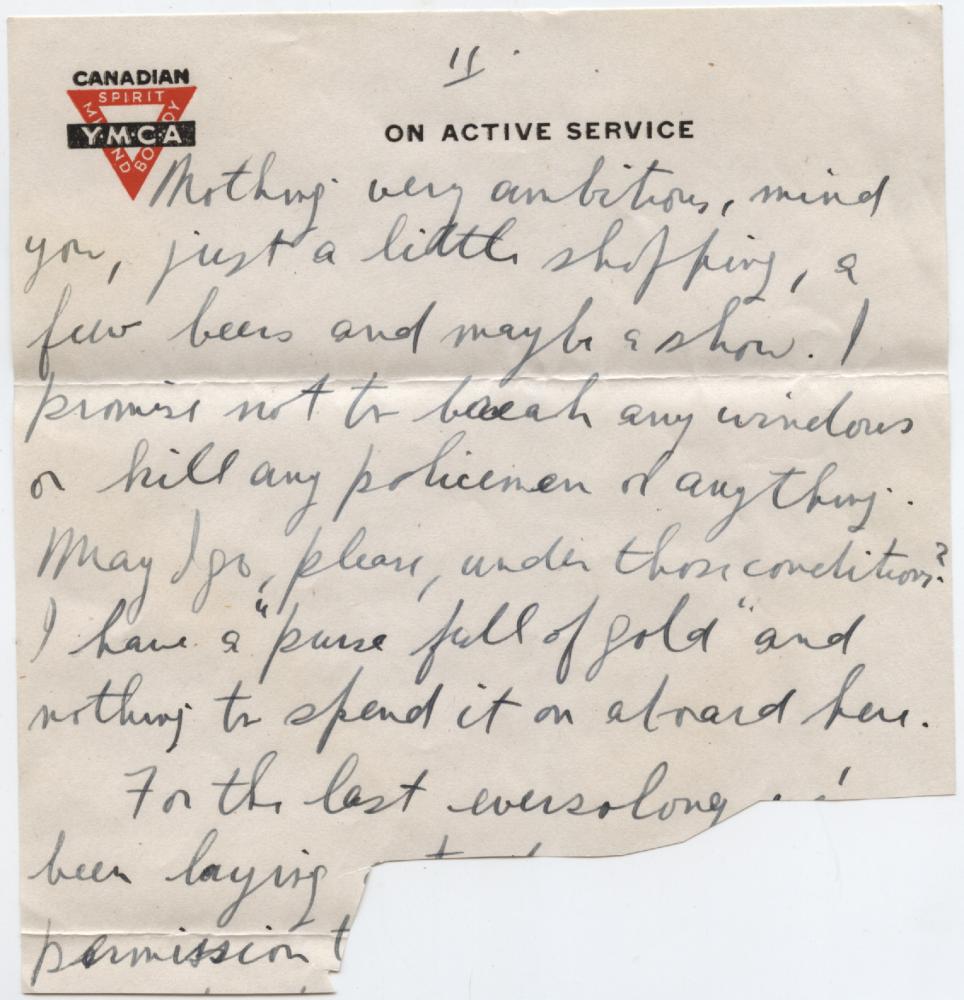 11
CANADIAN
SPIRIT
MIND
BODY
Y·M·C·A
ON ACTIVE SERVICE
Nothing very ambitious, mind
you, just a little shopping, a
few beers and maybe a show. I
promise not to break any windows
or kill any policemen or anything.
May I go, please, under those conditions?
I have a "purse full of gold" and
nothing to spend it on aboard here.
For the last eversolong
been laying
permission